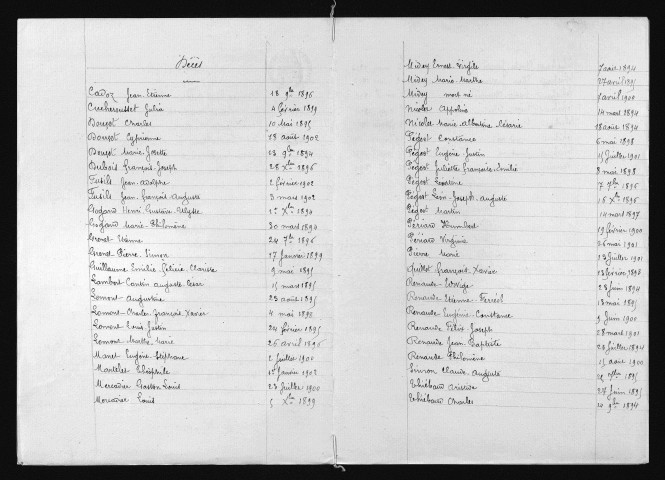 Décès
Cadoz Jean Etienne 18 9bre 1896
Cucherousset Julie 4 février 1899
Bourgot Charles 10 Mai 1895
Bourgot Cyprienne 13 août 1902
Bourgot Marie Josette 23 9bre 1894
Dubois François-Joseph 28 Xbre 1896
Futile Jean Adolphe 2 février 1902
Futile Jean François Auguste 3 mars 1902
Henri Gustave Ulysse 1er Xbre 1894
Marie Philomène 30 mars 1894
Grenot Etienne 24 7bre 1896
Grenot Pierre Simon 17 Janvier 1899
Guillaume Emilie Félicie Clarisse 9 mai 1895
Lambert Auguste César 15 mars 1895
Lomont Augustine 23 août 1895
Lomont Charles François Xavier 4 mai 1898
Lomont Louis Justin 24 février 1895
Lomont Marthe Marie 26 avril 1896
Manet Eugène Stéphane 2 Juillet 1900
Théophile 1er Janvier 1902
Mercadier Gaston Louis 23 Juillet 1900
Mercadier Louis 5 Xbre 1899
Midey Ernest Virgile 7 août 1894
Midey Marie Marthe 27 avril 1895
Midey mort né 7 avril 1900
Nicolet Appoline 14 mars 1894
Nicolet Marie Albertine Césarie 18 août 1894
Pégeot Constance 6 mai 1898
Pégeot Eugène Justin 15 Juillet 1901
Pégeot Juliette Françoise Emilie 8 mai 1898
Pégeot 7 9bre 1896
Pégeot Léon Joseph Auguste 18 Xbre 1896
Pégeot Martin 14 mars 1897
Humbert 19 février 1900
Virginie 26 mai 1901
Pierre Marie 13 Juillet 1901
Quillot François Xavier 13 février 1898
Renaude Edwige 28 Juin 1894
Renaude Etienne Ferréol 13 mai 1895
Renaude Eugénie Constance 9 Juin 1900
Renaude Félix Joseph 28 mars 1901
Renaude Jean Baptiste 28 Juillet 1894
Renaude Philomène 15 août 1900
Simon Claude Auguste 1895
Thiébaud 27 Juin 1895
Thiébaud Charles 24 9bre 1894